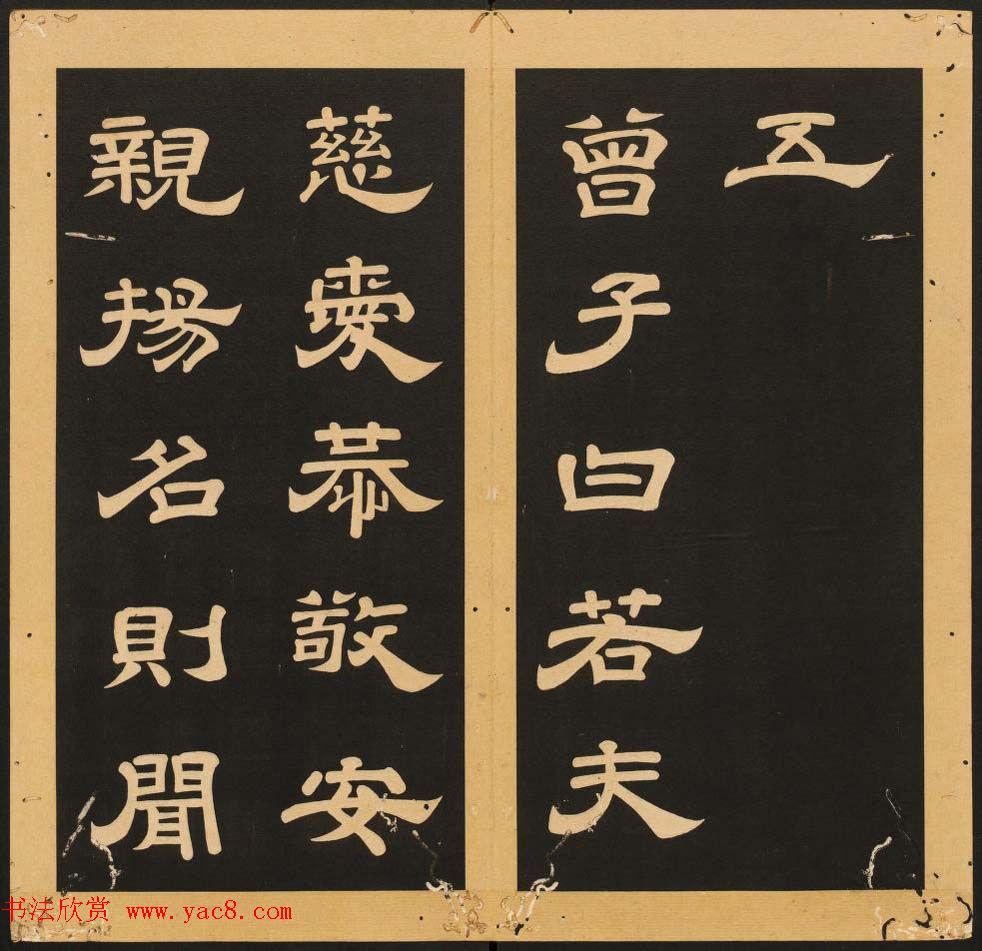 五
曾子曰若夫
慈愛恭敬安
親揚名則聞
书法欣赏 www.yac8.com